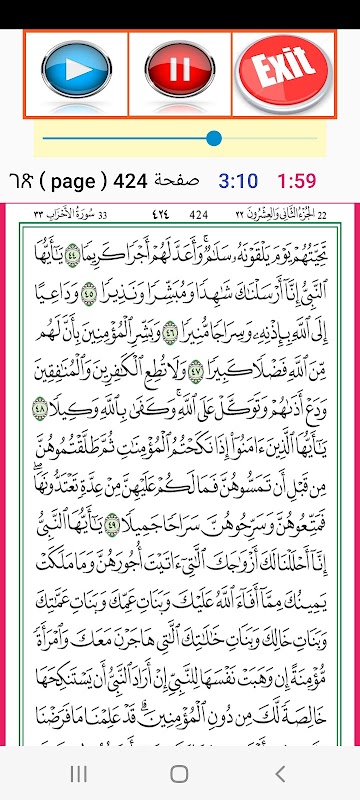 Exit
ገጽ ( page ) 424 صفحة 3:10 1:59
٣٣ سُورَةُ الأَحْزَاب 33 ٤٢٤ 424 الجُزْءُ الثَّانِي وَالعِشْرُونَ ٢٢ 22
تَحِيَّتُهُمْ يَوْمَ يَلْقَوْنَهُۥ سَلَٰمٌ ۚ وَأَعَدَّ لَهُمْ أَجْرًا كَرِيمًا ٤٤ يَٰٓأَيُّهَا
ٱلنَّبِىُّ إِنَّآ أَرْسَلْنَٰكَ شَٰهِدًا وَمُبَشِّرًا وَنَذِيرًا ٤٥ وَدَاعِيًا
إِلَى ٱللَّهِ بِإِذْنِهِۦ وَسِرَاجًا مُّنِيرًا ٤٦ وَبَشِّرِ ٱلْمُؤْمِنِينَ بِأَنَّ لَهُم
مِّنَ ٱللَّهِ فَضْلًا كَبِيرًا ٤٧ وَلَا تُطِعِ ٱلْكَٰفِرِينَ وَٱلْمُنَٰفِقِينَ
وَدَعْ أَذَىٰهُمْ وَتَوَكَّلْ عَلَى ٱللَّهِ ۚ وَكَفَىٰ بِٱللَّهِ وَكِيلًا ٤٨
يَٰٓأَيُّهَا ٱلَّذِينَ ءَامَنُوٓا۟ إِذَا نَكَحْتُمُ ٱلْمُؤْمِنَٰتِ ثُمَّ طَلَّقْتُمُوهُنَّ
مِن قَبْلِ أَن تَمَسُّوهُنَّ فَمَا لَكُمْ عَلَيْهِنَّ مِنْ عِدَّةٍ تَعْتَدُّونَهَا ۖ
فَمَتِّعُوهُنَّ وَسَرِّحُوهُنَّ سَرَاحًا جَمِيلًا ٤٩ يَٰٓأَيُّهَا ٱلنَّبِىُّ
إِنَّآ أَحْلَلْنَا لَكَ أَزْوَٰجَكَ ٱلَّٰتِىٓ ءَاتَيْتَ أُجُورَهُنَّ وَمَا مَلَكَتْ
يَمِينُكَ مِمَّآ أَفَآءَ ٱللَّهُ عَلَيْكَ وَبَنَاتِ عَمِّكَ وَبَنَاتِ عَمَّٰتِكَ
وَبَنَاتِ خَالِكَ وَبَنَاتِ خَٰلَٰتِكَ ٱلَّٰتِى هَاجَرْنَ مَعَكَ وَٱمْرَأَةً
مُّؤْمِنَةً إِن وَهَبَتْ نَفْسَهَا لِلنَّبِىِّ إِنْ أَرَادَ ٱلنَّبِىُّ أَن يَسْتَنكِحَهَا
خَالِصَةً لَّكَ مِن دُونِ ٱلْمُؤْمِنِينَ ۗ قَدْ عَلِمْنَا مَا فَرَضْنَا